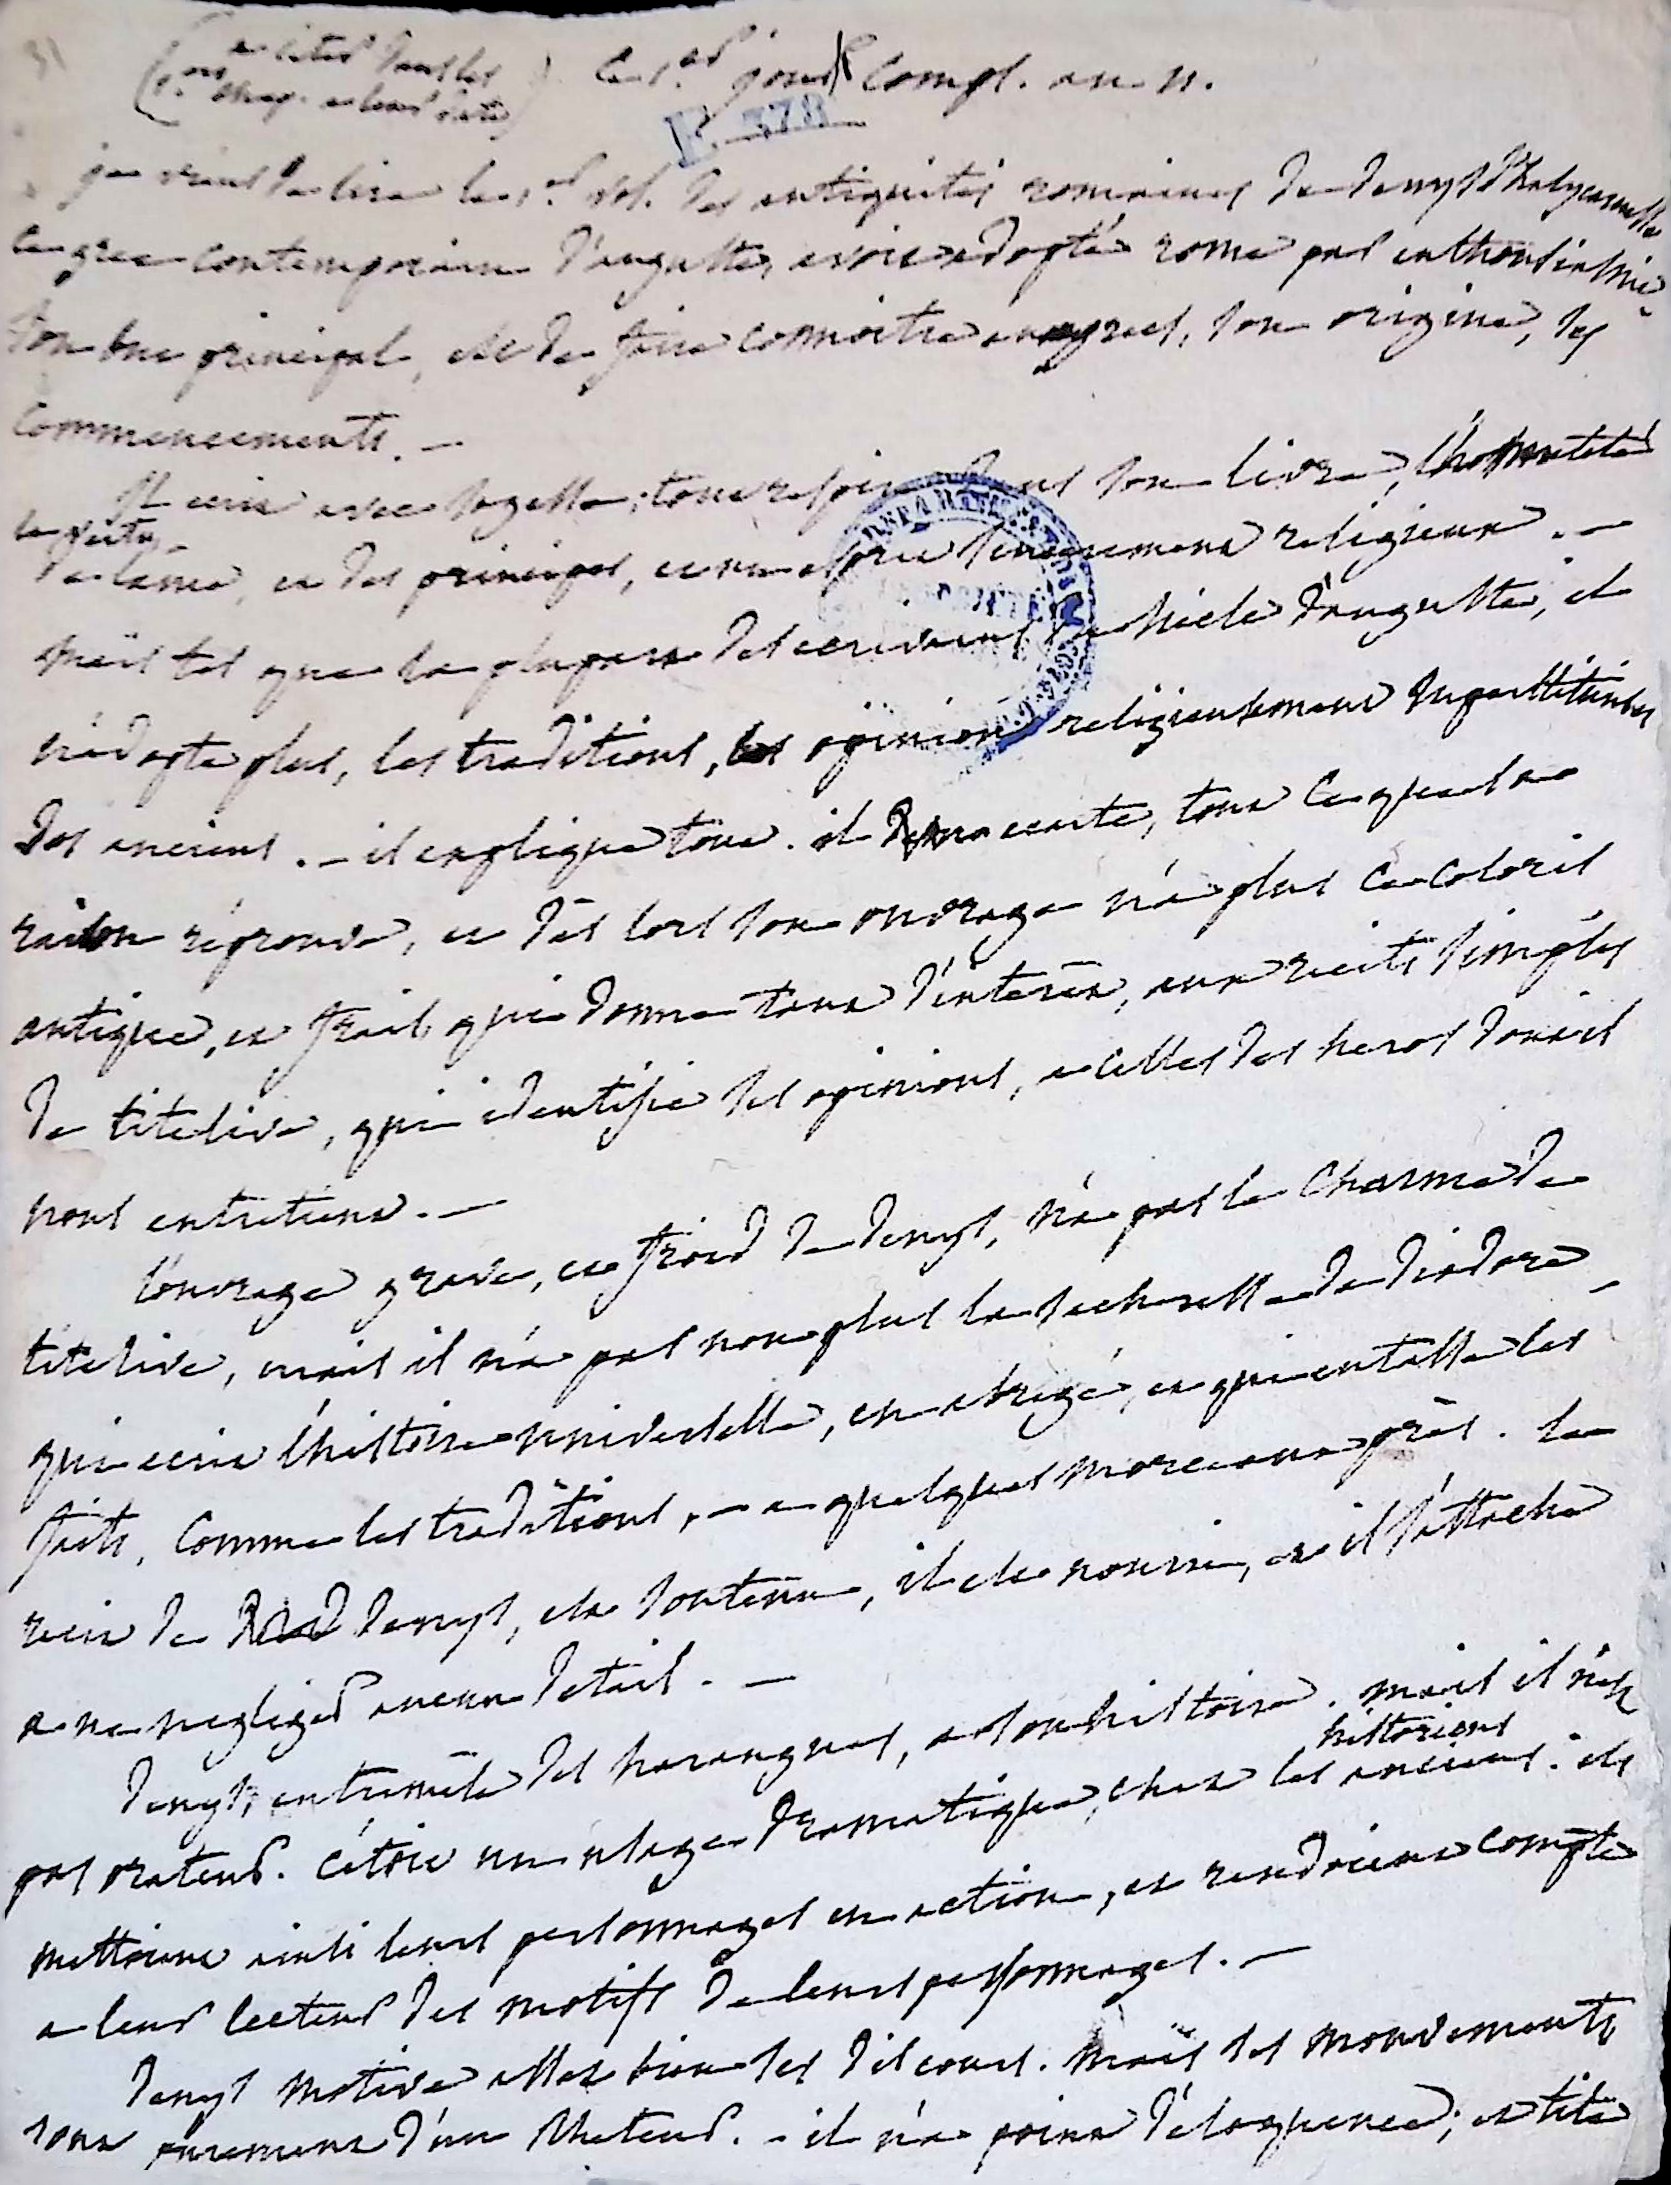 ce 1.er jour compl. an 11.
F 378
je viens de lire le 1.er vol. des antiquités romaines de denys d'halycarnasse
ce grec contemporain d'auguste, avoit adopté rome par enthousiasme
son but principal, est de faire connoitre aux grecs, son origine, ses
commencements. —
Il ecrit avec sagesse; tout respire dans son livre, l'honnêteté
la vertu
de l'ame, et des principes, et un esprit sincerement religieux. —
mais tel que la plupart des ecrivains du siecle d'auguste, il
n'adopte plus, les traditions, les opinions religieusement superstitieuses
des anciens. — il explique tout. il ecarte, tout ce que la
raison réprouve, et dès lors son ouvrage n'a plus ce coloris
antique, et frais, qui donne tant d'interêt, aux recits simples
de titelive, qui identifie ses opinions, a celles des heros dont il
nous entretient. —
l'ouvrage grave, et froid de denys, n'a pas le charme de
titelive, mais il n'a pas non plus la secheresse de diodore,
qui ecrit l'histoire universelle, en abrégé, et qui entasse les
faits, comme les traditions, — a quelques morceaux près. le
recit de denys, est soutenu, il est nourri, et il s'attache
a ne negliger aucun detail. —
denys, entremêle des harangues, a son histoire. mais il n'est
historiens
pas orateur. c'étoit un usage dramatique, chez les anciens. ils
mettoient ainsi leurs personnages en action, et rendoient compte
a leur lecteur des motifs de leurs personnages. —
denys motive assez bien ses discours. mais ses mouvements
sont purement d'un rheteur. — il n'a point d'éloquence; et tite